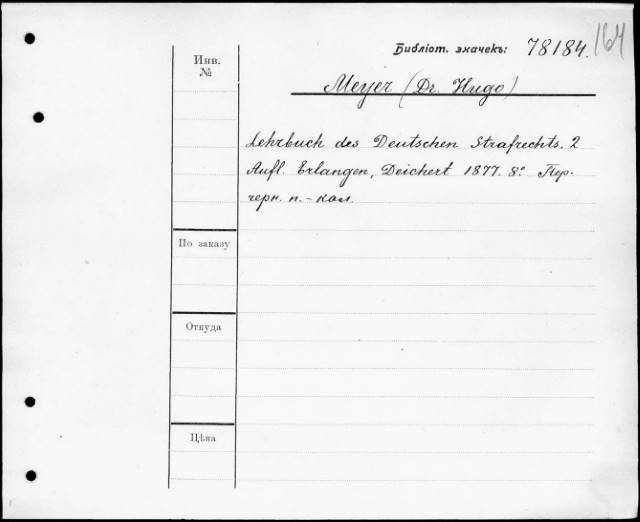 164
Библіот. значекъ: 78184.
Инв.
№
Meyer (Dr. Hugo)
Lehrbuch des Deutschen Strafrechts. 2
Aufl. Erlangen, Deichert 1877. 8º Пер.
черн. п.-кол.
По заказу
Откуда
Цѣна